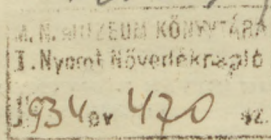 M. N. MUZEUM KÖNYVTÁRA
I. Nyomt. Növedéknapló
1934 év 470 sz.